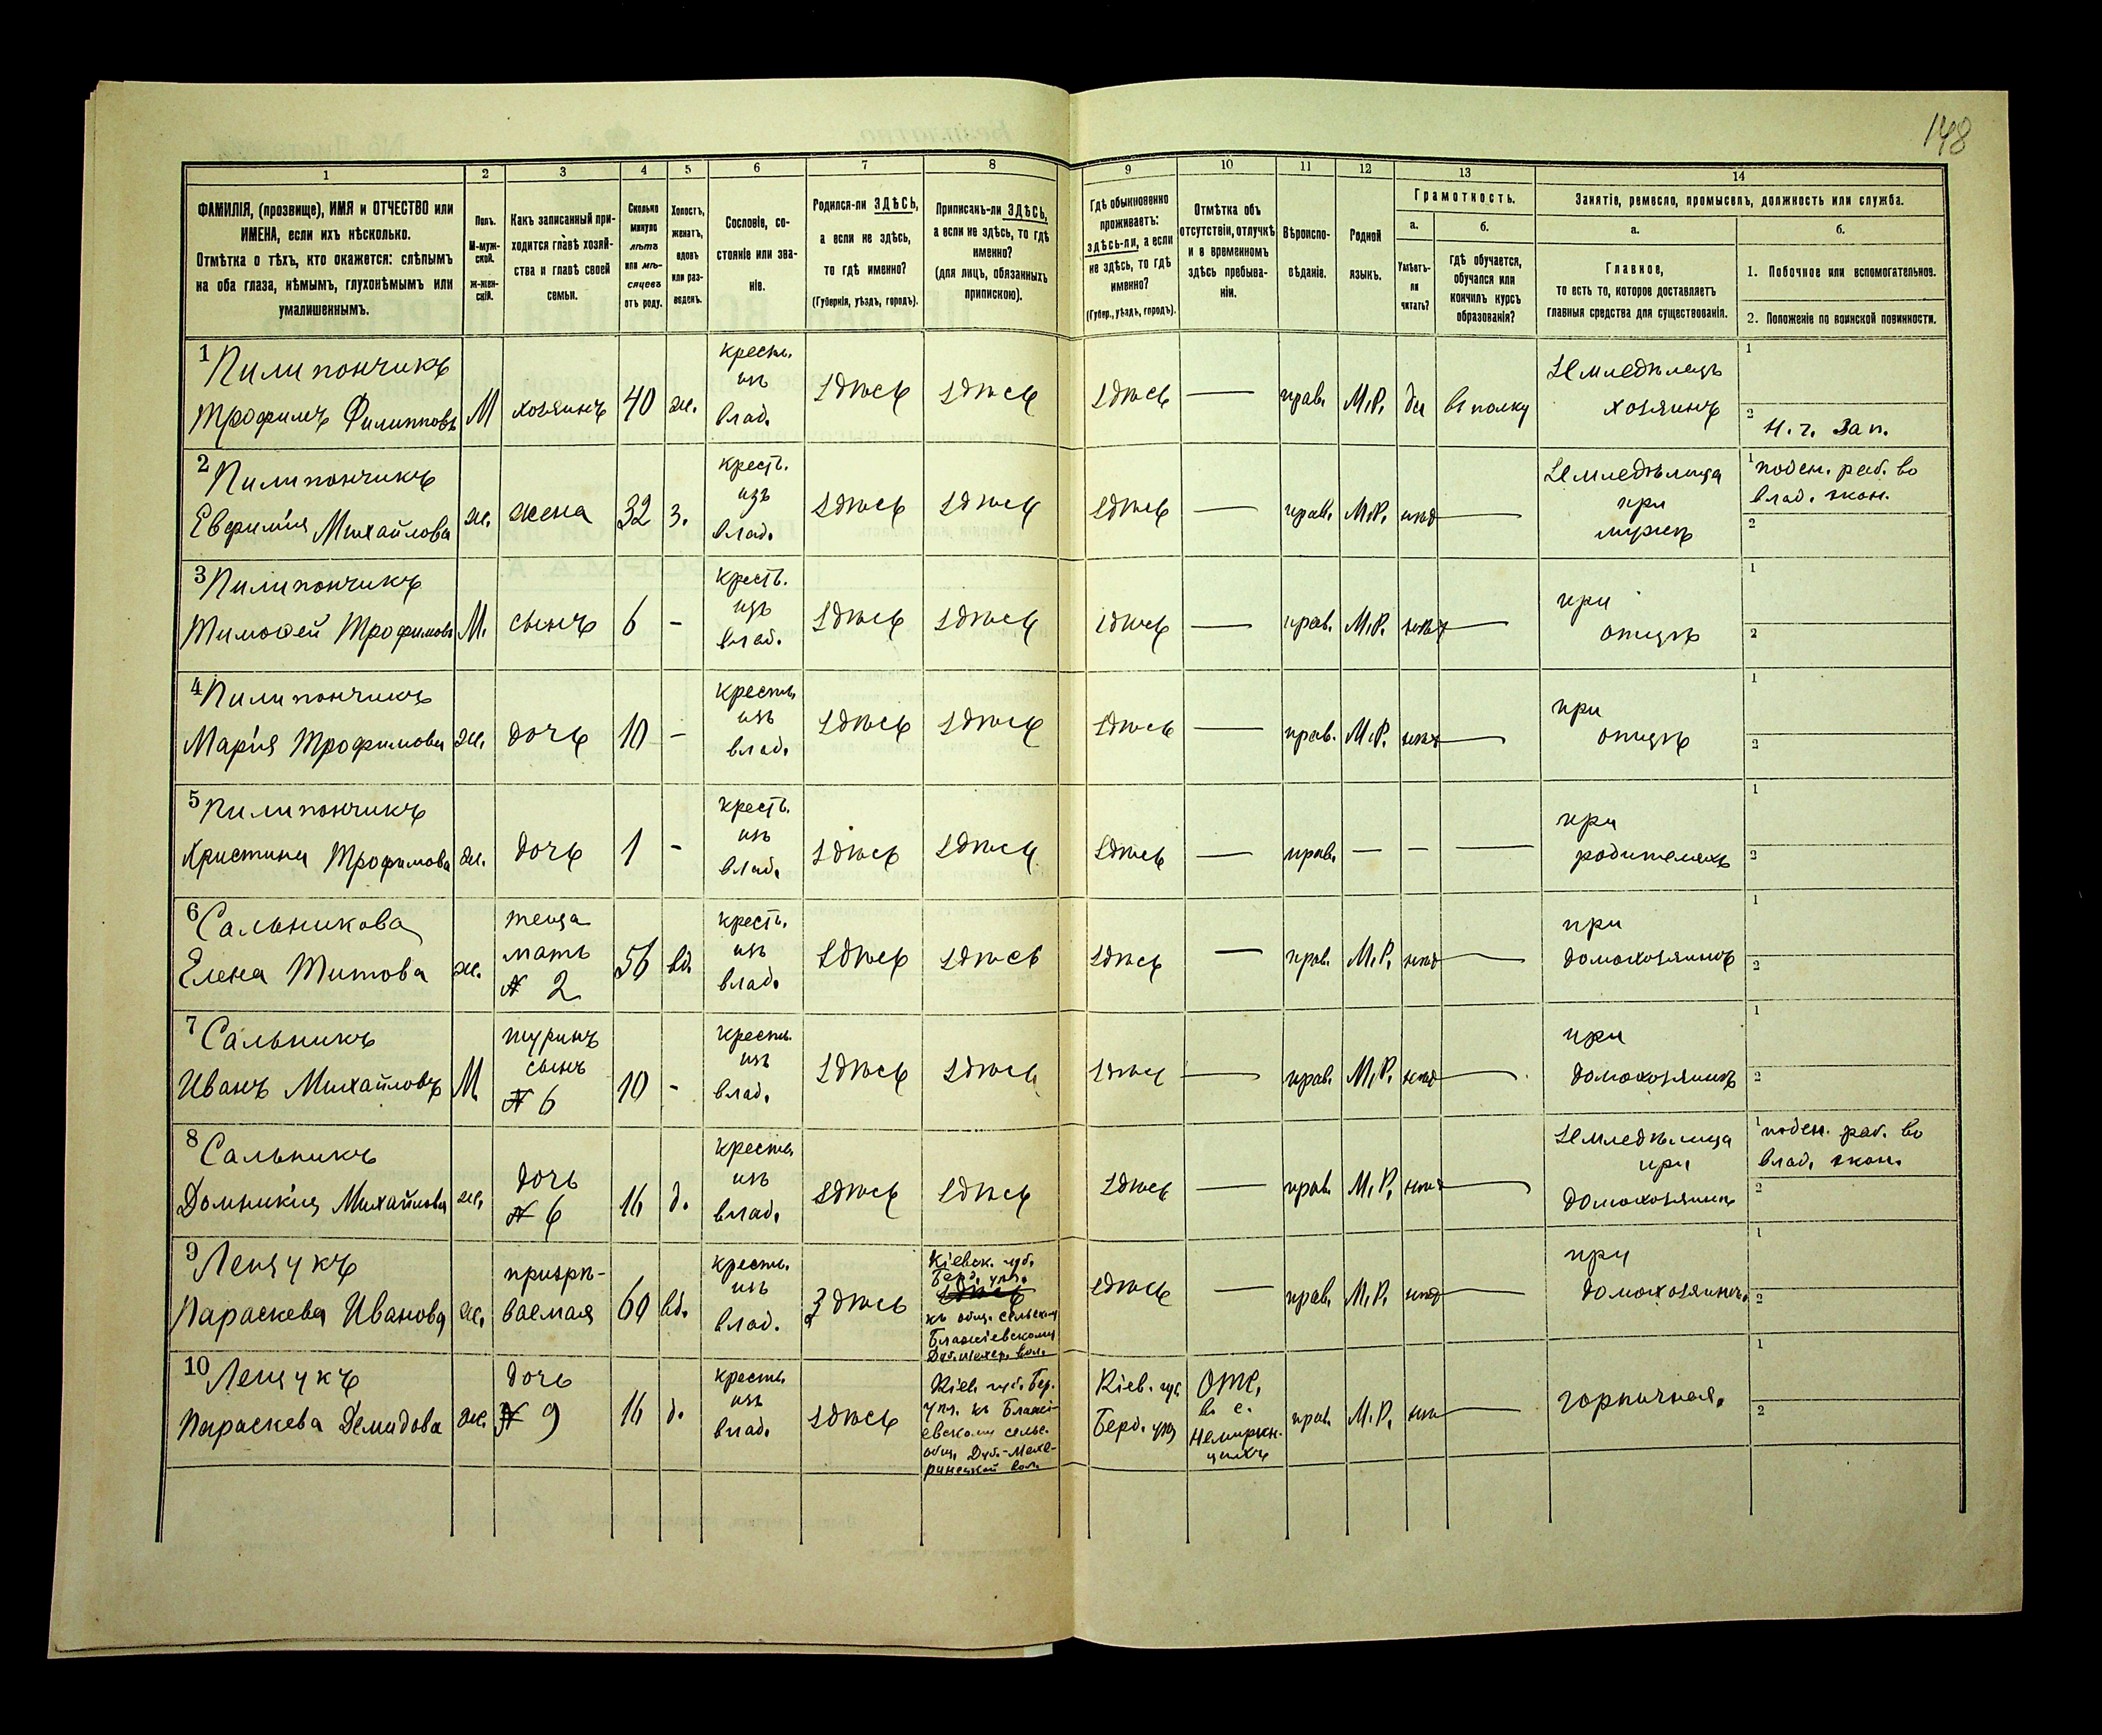 148
1 2 3 4 5 6 7 8 9 10 11 12 13 14
ФАМИЛІЯ, (прозвище), ИМЯ и ОТЧЕСТВО или
ИМЕНА, если ихъ нѣсколько.
Отмѣтка о тѣхъ, кто окажется: слѣпымъ
на оба глаза, нѣмымъ, глухонѣмымъ или
умалишеннымъ.
Полъ.
М-муж-
ской.
Ж-жен-
скій.
Какъ записанный при-
ходится главѣ хозяй-
ства и главѣ своей
семьи.
Сколько
минуло
лѣтъ
или мѣ-
сяцевъ
отъ роду.
Холостъ,
женатъ,
вдовъ
или раз-
веденъ.
Сословіе, со-
стояніе или зва-
ніе.
Родился-ли ЗДѢСЬ,
а если не здѣсь,
то гдѣ именно?
(Губернія, уѣздъ, городъ).
Приписанъ-ли ЗДѢСЬ,
а если не здѣсь, то гдѣ
именно?
(для лицъ, обязанныхъ
припискою).
Гдѣ обыкновенно
проживаетъ:
здѣсь-ли, а если
не здѣсь, то гдѣ
именно?
(Губер., уѣздъ, городъ).
Отмѣтка объ
отсутствіи, отлучкѣ
и о временномъ
здѣсь пребыва-
ніи.
Вѣроиспо-
вѣданіе.
Родной
языкъ.
Грамотность.
а.
Умѣетъ-
ли
читать?
б.
гдѣ обучается,
обучался или
кончилъ курсъ
образованія?
Занятіе, ремесло, промыселъ, должность или служба.
а.
Главное,
то есть то, которое доставляетъ
главныя средства для существованія.
б.
1. Побочное или вспомогательное.
2. Положеніе по воинской повинности.
1 Пилипончикъ
Трофимъ Филипповъ
М
хозяинъ
40
ж.
кресть.
изъ
влад.
здѣсь
здѣсь
здѣсь
—
прав.
М.Р.
да
въ полку
Земледѣлецъ
хозяинъ
1
2
Н. ч. Зап.
2 Пилипончикъ
Евфимія Михайлова
ж.
жена
32
з.
крест.
изъ
влад.
здѣсь
здѣсь
здѣсь
—
прав.
М.Р.
нѣт
—
Земледѣлица
при
мужѣ
1 поден. раб. во
влад. экон.
2
3 Пилипончикъ
Тимофей Трофимовъ
М.
сынъ
6
-
крест.
изъ
влад.
здѣсь
здѣсь
здѣсь
—
прав.
М.Р.
нѣт
—
при
отцѣ
1
2
4 Пилипончикъ
Марія Трофимова
ж.
дочь
10
-
кресть.
изъ
влад.
здѣсь
здѣсь
здѣсь
—
прав.
М.Р.
нѣт
—
при
отцѣ
1
2
5 Пилипончикъ
Христина Трофимова
ж.
дочь
1
-
крест.
изъ
влад.
здѣсь
здѣсь
здѣсь
—
прав.
—
—
—
при
родителяхъ
1
2
6 Сальникова
Елена Титова
ж.
теща
мать
№ 2
56
вд.
крест.
изъ
влад.
здѣсь
здѣсь
здѣсь
—
прав.
М.Р.
нѣт
—
при
домохозяинѣ
1
2
7 Сальникъ
Иванъ Михайловъ
М.
шуринъ
сынъ
№ 6
10
-
кресть.
изъ
влад.
здѣсь
здѣсь
здѣсь
—
прав.
М.Р.
нѣт
—
при
домохозяинѣ
1
2
8 Сальникъ
Домникія Михайлова
ж.
дочь
№ 6
16
д.
кресть.
изъ
влад.
здѣсь
здѣсь
здѣсь
—
прав.
М.Р.
нѣт
—
Земледѣлица
при
домохозяинѣ
1 поден. раб. во
влад. экон.
2
9 Лещукъ
Параскева Иванова
ж.
призрѣ-
ваемая
60
вд.
кресть.
изъ
влад.
здѣсь
Кіевск. губ.
Берд. уѣз.
здѣсь
къ общ. сельскому
Блажіевскому
Дуб.махер. вол.
здѣсь
—
прав.
М.Р.
нѣт
при
домохозяинѣ.
1
2
10 Лещукъ
Параскева Демидова
ж.
дочь
№ 9
16
д.
кресть.
изъ
влад.
здѣсь
Кіев. губ. Бер.
уѣз. къ Блажі-
евскому сельс.
общ. Дуб.-Махе-
ринецкой вол.
Кіев. губ.
Берд. уѣз
Отс.
в. с.
Немирин-
цихъ
прав.
М.Р.
нѣт
горничная.
1
2